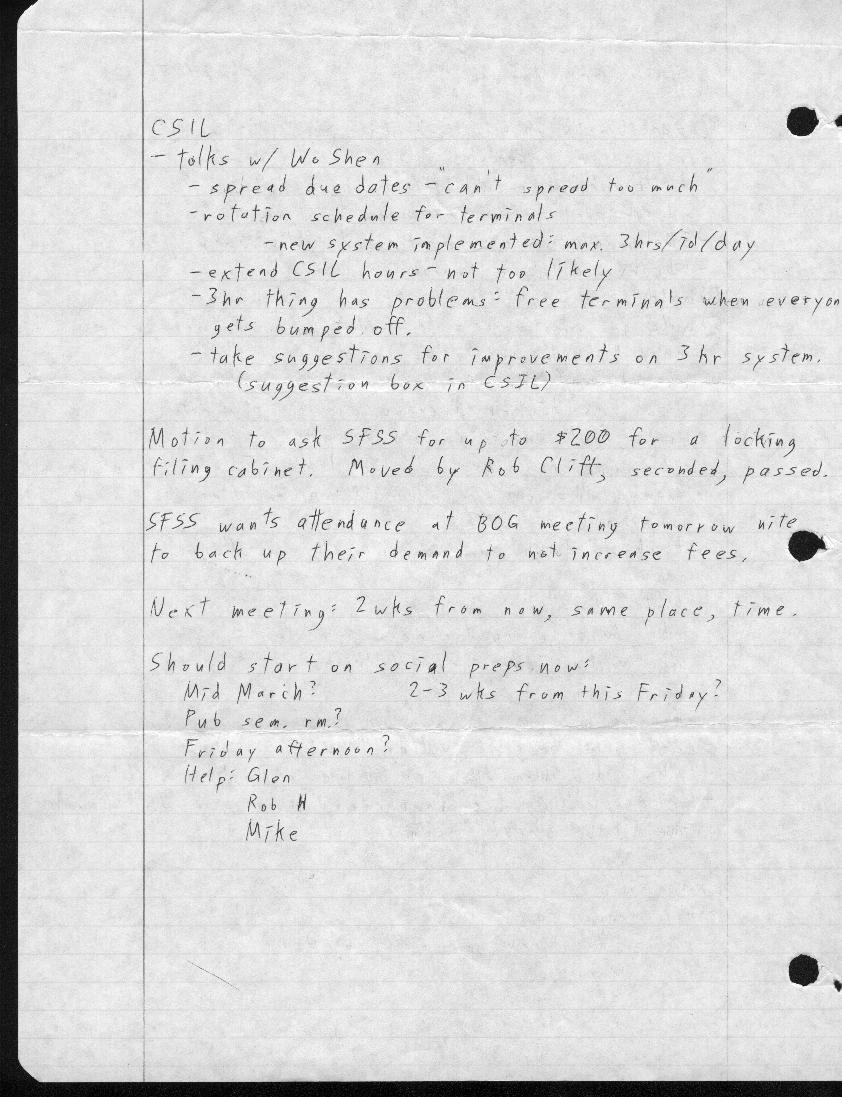 CSIL
- talks w/ Wo Shen
- spread due dates - "can't spread too much"
- rotation schedule for terminals
- new system implemented: max. 3hrs/id/day
- extend CSIL hours - not too likely
- 3hr thing has problems: free terminals when everyon
gets bumped off.
- take suggestions for improvements on 3 hr system.
(suggestion box in CSIL)
Motion to ask SFSS for up to $200 for a locking
filing cabinet. Moved by Rob Clift, seconded, passed.
SFSS wants attendance at BOG meeting tomorrow nite
to back up their demand to not increase fees.
Next meeting: 2 wks from now, same place, time.
Should start on social preps now:
Mid March? 2-3 wks from this Friday?
Pub sem. rm.?
Friday afternoon?
Help: Glen
Rob H
Mike